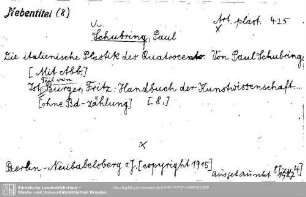 Nebentitel (8)
Art. plast. 425
Schubring, Paul
Die italienische Plastik des Quatrocento. Von Paul Schubring.
[Mit Abb.]
Burger, Fritz: Handbuch der Kunstwissenschaft...
[ohne Bd-Zählung] [8.]
Berlin-Neubabelsberg o.J. [copyright 1915]